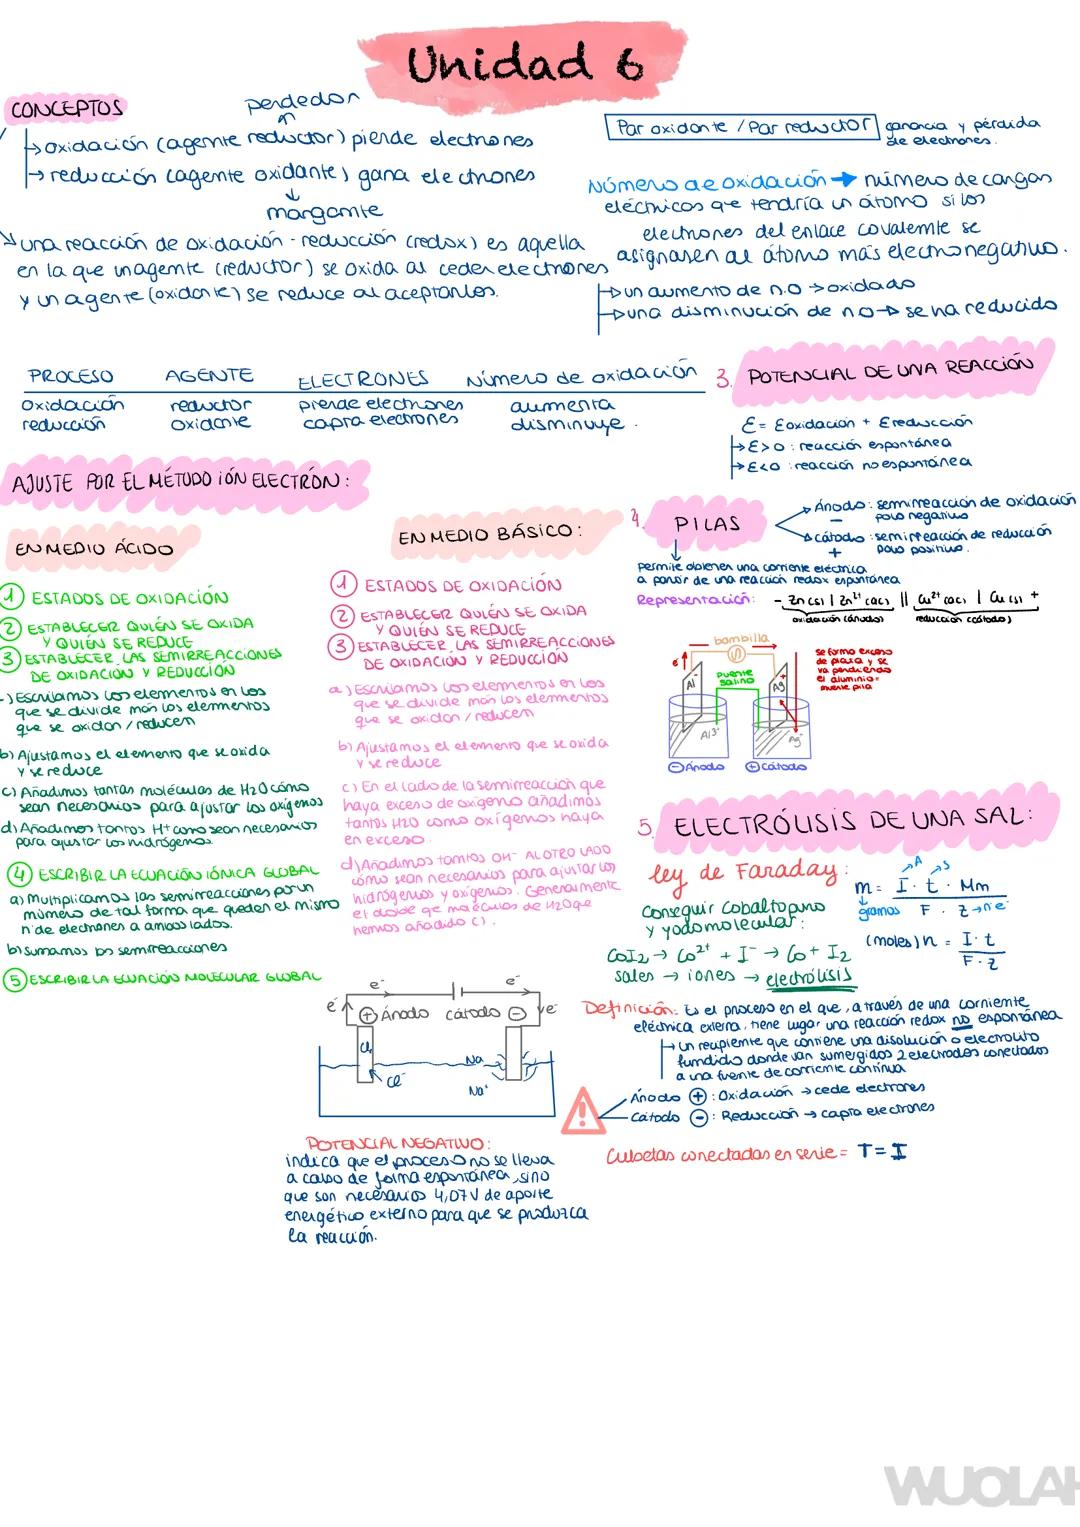 Unidad 6
CONCEPTOS
perdedor
oxidación (agente reductor) pierde electrones
reducción (agente oxidante) gana electrones
margante
una reacción de oxidación - reducción (redox) es aquella
en la que un agente (reductor) se oxida al ceder electrones
y un agente (oxidante) se reduce al aceptarlos.
Par oxidante / Par reductor
ganancia y pérdida
de electrones.
Número de oxidación → número de cargas
eléctricas que tendría un átomo si los
electrones del enlace covalente se
asignasen al átomo más electronegativo.
un aumento de n.o → oxidado
una disminución de n.o → se ha reducido
PROCESO AGENTE ELECTRONES Número de oxidación
oxidación reductor pierde electrones aumenta
reducción oxidante capta electrones disminuye.
3. POTENCIAL DE UNA REACCIÓN
E = Eoxidación + Ereducción
E>0: reacción espontánea
E<0: reacción no espontánea
AJUSTE POR EL MÉTODO IÓN ELECTRÓN:
EN MEDIO ÁCIDO
1 ESTADOS DE OXIDACIÓN
2 ESTABLECER QUIÉN SE OXIDA
Y QUIÉN SE REDUCE
3 ESTABLECER LAS SEMIRREACCIONES
DE OXIDACIÓN Y REDUCCIÓN
) Escribamos los elementos en los
que se divide más los elementos
que se oxidan / reducen
b) Ajustamos el elemento que se oxida
y se reduce
c) Añadimos tantas moléculas de H2O como
sean necesarios para ajustar los oxígenos
d) Añadimos tantos H+ como sean necesarios
para ajustar los hidrógenos.
4 ESCRIBIR LA ECUACIÓN IÓNICA GLOBAL
a) Multiplicamos las semirreacciones por un
número de tal forma que queden el mismo
nº de electrones a ambos lados.
b) sumamos las semirreacciones
5 ESCRIBIR LA ECUACIÓN MOLECULAR GLOBAL
EN MEDIO BÁSICO:
1 ESTADOS DE OXIDACIÓN
2 ESTABLECER QUIÉN SE OXIDA
Y QUIÉN SE REDUCE
3 ESTABLECER LAS SEMIRREACCIONES
DE OXIDACIÓN Y REDUCCIÓN
a) Escribamos los elementos en los
que se divide más los elementos
que se oxidan / reducen
b) Ajustamos el elemento que se oxida
y se reduce
c) En el lado de la semirreacción que
haya exceso de oxígeno añadimos
tantos H2O como oxígenos haya
en exceso.
d) Añadimos tantos OH- AL OTRO LADO
como sean necesarios para ajustar los
hidrógenos y oxígenos. Generalmente
el doble de moléculas de H2O que
hemos añadido c).
4. PILAS
Ánodo: semirreacción de oxidación
- polo negativo
cátodo: semirreacción de reducción
+ polo positivo.
permite obtener una corriente eléctrica
a partir de una reacción redox espontánea
Representación: - Zn(s) | Zn2+ (ac) || Cu2+ (ac) | Cu(s) +
oxidación (ánodo) reducción (cátodo)
bombilla
e-
puente
salino
Al-
Ag+
Al3+
Ag+
- Ánodo
+ Cátodo
se forma exceso
de plata y se
va perdiendo
el aluminio =
muere pila
5. ELECTRÓLISIS DE UNA SAL:
ley de Faraday:
A s
m = I · t · Mm
gramos F · z → nº e-
(moles) n = I·t
F·z
Conseguir Cobalto puro
y yodo molecular:
CoI2 → Co2+ + I- → Co + I2
sales → iones → electrólisis
Definición: Es el proceso en el que, a través de una corriente
eléctrica externa, tiene lugar una reacción redox no espontánea
un recipiente que contiene una disolución o electrolito
fundido donde van sumergidos 2 electrodos conectados
a una fuente de corriente continua
Ánodo +: Oxidación → cede electrones
Cátodo -: Reducción → capta electrones
Cubetas conectadas en serie = T = I
e- e-
e- + Ánodo cátodo - e-
Cl2
Cl-
Na
Na+
POTENCIAL NEGATIVO:
indica que el proceso no se lleva
a cabo de forma espontánea, sino
que son necesarios 4,07V de aporte
energético externo para que se produzca
la reacción.
WUOLAH